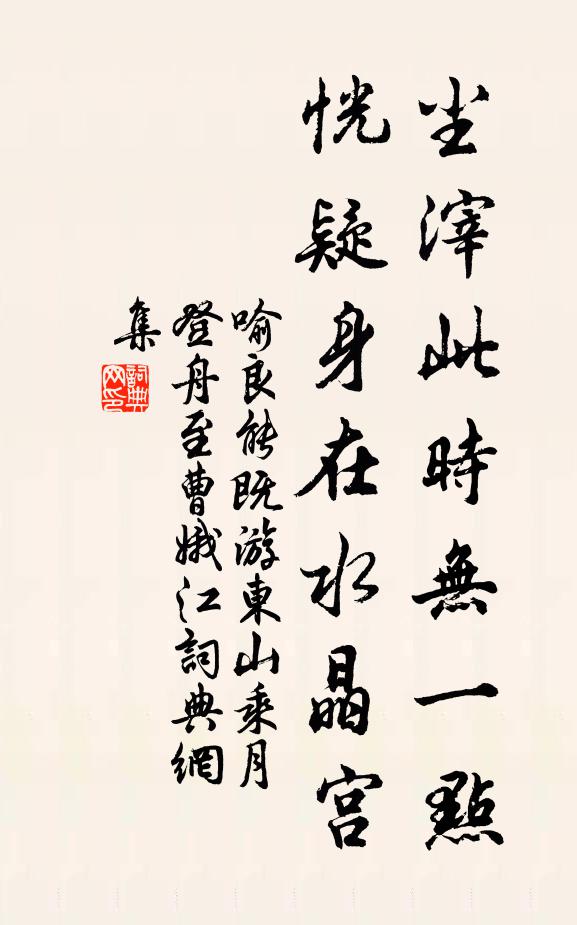 尘滓此時無一點
恍疑身在水晶宮
喻良能既游東山乘月
登舟至曹娥江詞典網
集
詞典
网印